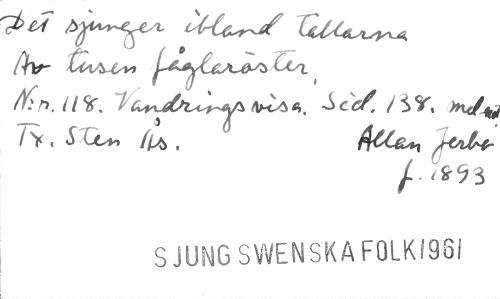 Det sjunger ibland tallarna
Av tusen fåglaröster,
N:r. 118. Vandringsvisa. Sid. 138. mel. not.
Tx. Sten Ås. Allan Jerbo
f. 1893
SJUNG SWENSKA FOLK 1961